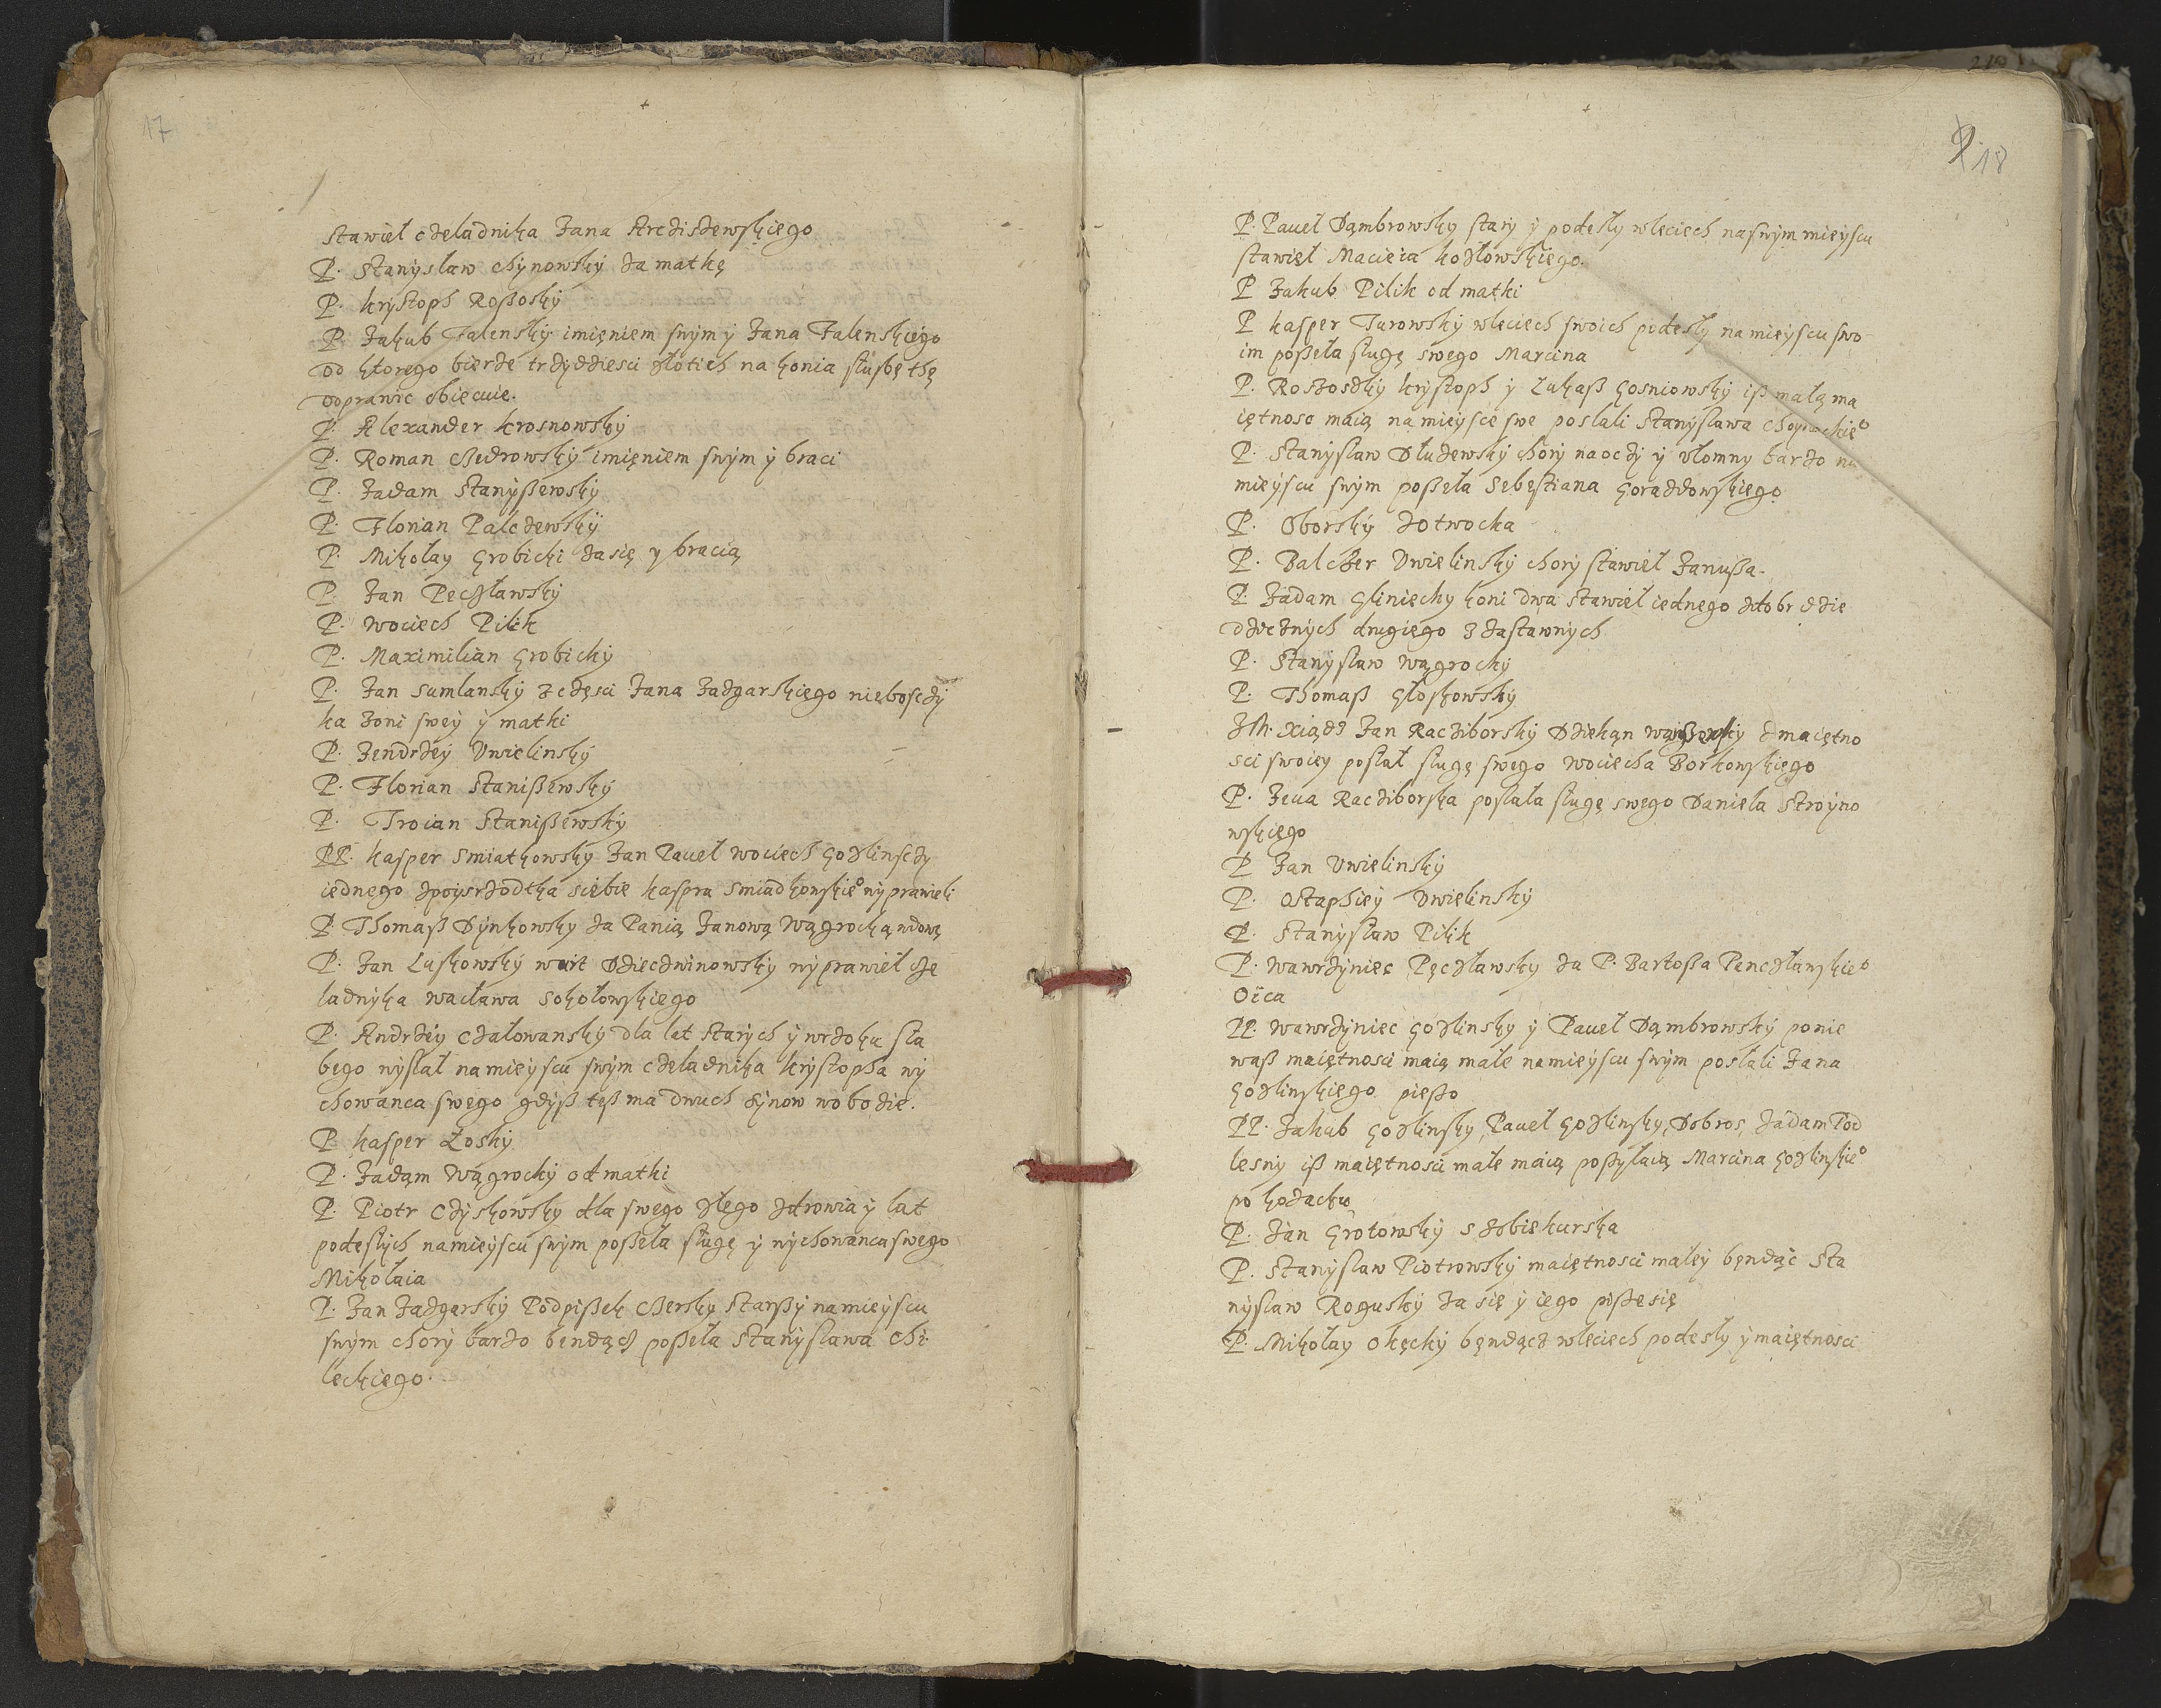 17
stawiel czeladnika Jana Arczisewskiego
P. Stanyslaw Chynowsky za matkę
P. Krystoph Roßosky
P. Jakub Jalensky imięniem swym y Jana Jalenskiego
od ktorego bierze trzydziesci złotich na konia służbę thę
odprawic obiecuie.
P. Alexander Krosnowsky
P. Roman Chedrowsky imięniem swym y braci
P. Jadam Stanyßewsky
P. Florian Palczewsky
P. Mikołay Grobicki za się y bracią
P. Jan Peczławsky
P. Wociech Pilik
P. Maximilian Grobicky
P. Jan Sumlansky z części Jana Jazgarskiego niebosczy
ka żoni swey y matki
P. Jendrzey Uwielinsky
P. Florian Stanißewsky
P. Troian Stanißewsky
PP. Kasper Smiatkowsky Jan Paweł Wociech Gozlinsczy
iednego zpoysrzodtka siebie Kaspra Smiadkowskie° wyprawieli
P. Thomaß Dynkowsky za Panią Janową Wągrocką wdowę
P. Jan Luskowsky woit Dzieczwinowsky wyprawieł cze
ladnyka Wacława Sokołowskiego
P. Andrzey Czałowansky dla lat starych y wzroku sła
bego wysłał na mieyscu swym czeladnika Krystopha wy
chowanca swego gdyß teß ma dwuch synow w obozie.
P. Kasper Łosky
P. Jadam Wągrocky od matki
P. Piotr Czyskowsky dla swego złego zdrowia y lat
podeslych na mieyscu swym poßeła sługę y wychowanca swego
Mikołaia
P. Jan Jazgarsky Podpißek Chersky Starßy na mieyscu
swym chory barzo bendącz poßeła Stanyslawa Chi
leckiego.
9. 18
P. Paweł Dąmbrowsky stary y podesły w leciech na swym mieyscu
stawieł Macieia Kozłowskiego.
P. Jakub Pilik od matki
P. Kasper Turowsky w leciech swoich podesły na mieyscu swo
im poßeła sługę swego Marcina
P. Roszosky Krystoph y Łukaß Gosniowsky iß małą ma
iętnosc maią na mieysce swe posłali Stanyslawa Choynackie°
P. Stanyslaw Dłużewsky chory na oczy y ułomny barzo na
mieyscu swym poßeła Sebestiana Gorazdowskiego
P. Oborsky z Otwocka
P. Balczer Uwielinsky chory stawieł Janußa.
P. Jadam Gliniecky koni dwa stawieł iednego z dobr dzie
dzicznych drugiego z zastawnych
P. Stanyslaw Wągrocky
P. Thomaß Głoskowsky
JM. Xiądz Jan Racziborsky Dziekąn z maiętno
sci swoiey posłał sługę swego Wociecha Borkowskiego
P. Jewa Racziborska posłała sługę swego Daniela Stroyno
wskiego
P. Jan Uwielinsky
P. Ostaphiey Uwielinsky
P. Stanyslaw Pilik
P. Wawrzyniec Pęczławsky za P. Bartoßa Penczławskie°
Oica
PP. Wawrzyniec Gozlinsky y Paweł Dąmbrowsky ponie
waß maiętnosci maią małe na mieyscu swym posłali Jana
Gozlinskiego pießo
PP. Jakub Gozlinsky, Paweł Gozlinsky, Dobros, Jadam Pod
lesny iß maiętnosci małe maią poßyłaią Marcina Gozlinskie°
po kozacku
P. Jan Grotowsky s Zbiskurska
P. Stanyslaw Piotrowsky maiętnosci małey bendąc Sta
nyslaw Rogusky za się y iego pisze się
P. Mikołay Okęcky bęndącz w leciech podesły y maiętnosci